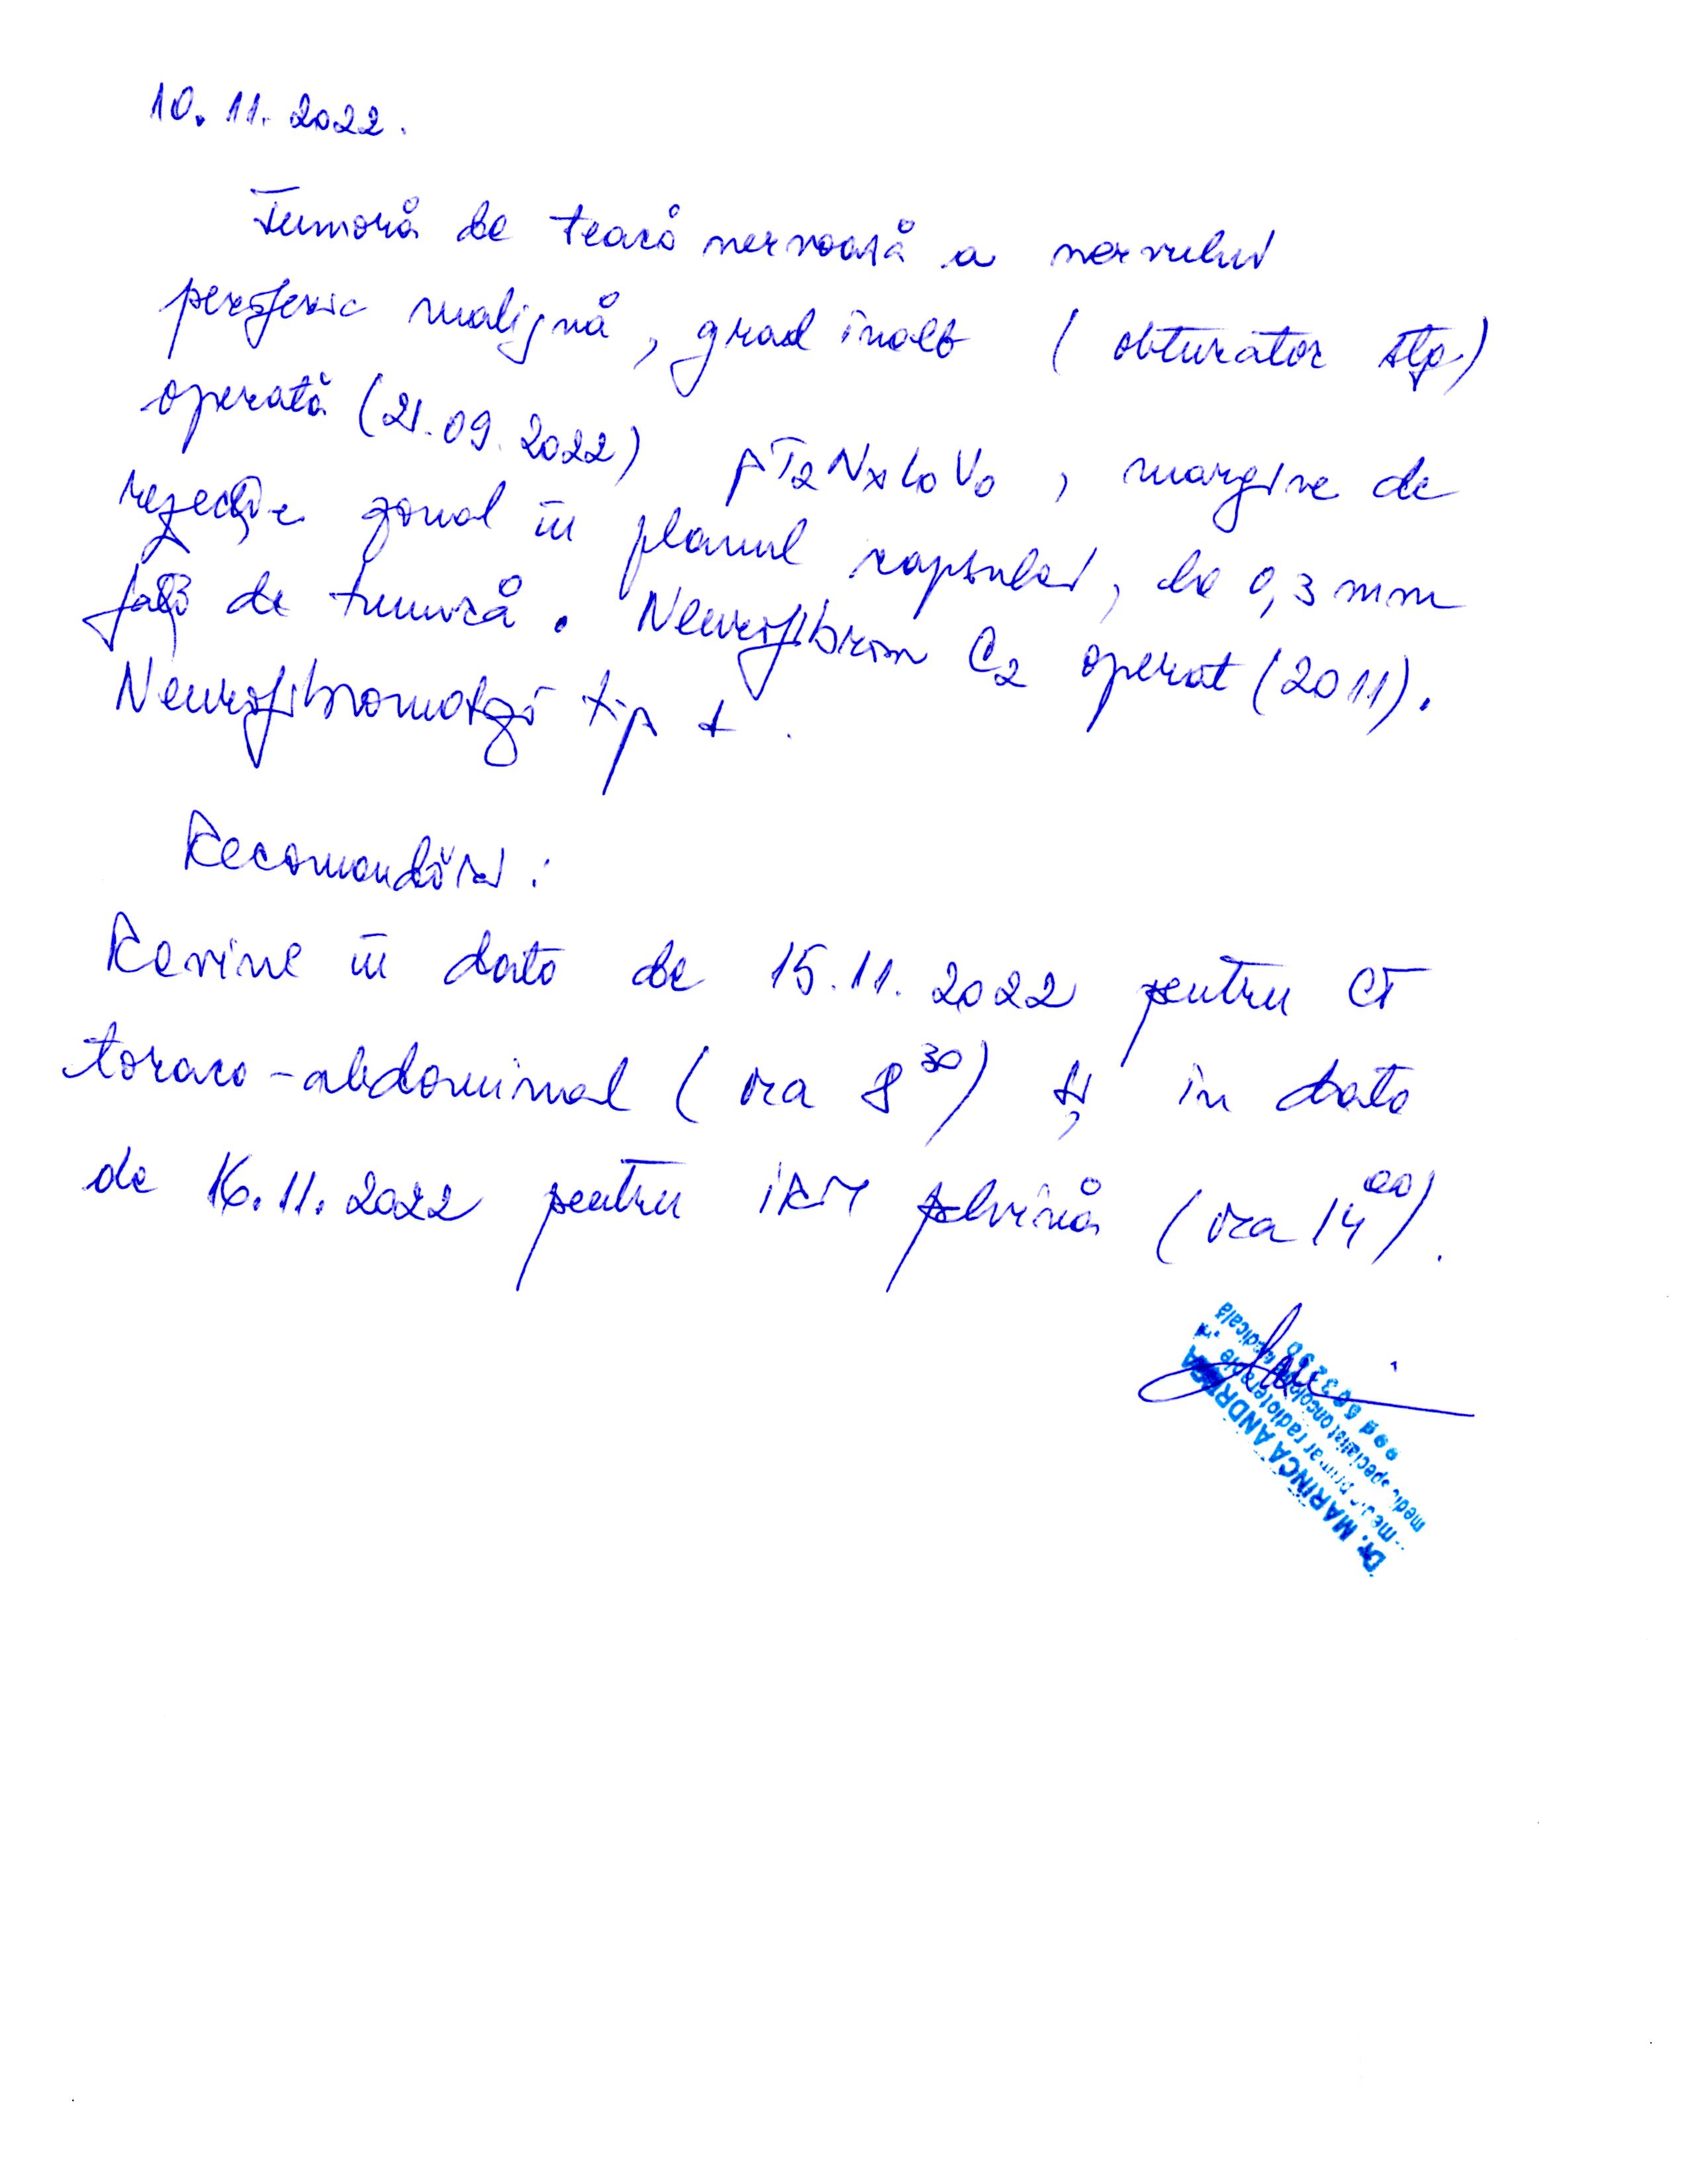 10.11.2022.
Tumoră de teacă nervoasă a nervului
periferic malignă, grad înalt (obturator stg)
operată (21.09.2022) pT2NxL0V0, margine de
rezecție zonal în planul capsulei, la 0,3 mm
față de tumoră. Neurofibrom C2 operat (2011).
Neurofibromatoză tip 1.
Recomandări:
Revine în data de 15.11.2022 pentru CT
toraco-abdominal (ora 8 30) și în data
de 16.11.2022 pentru IRM pelvină (ora 14 00).
Dr. MARINCĂ ANDREEA
medic primar radioterapie
medic specialist oncologie medicală